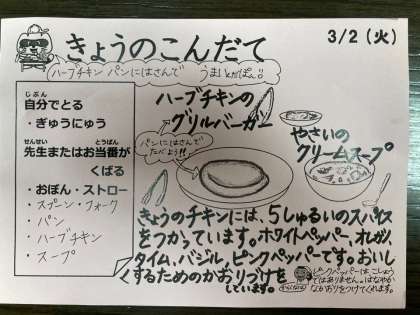 きょうのこんだて
3/2(火)
ハーブチキン パンにはさんで
じぶん
自分でとる
・ぎゅうにゅう
せんせい とうばん
先生またはお当番が
くばる
・おぼん・ストロー
・スプーン・フォーク
・パン
・ハーブチキン
・スープ
ハーブチキンの
グリルバーガー
パンにはさんで
たべよう!!
やさいの
クリームスープ
きょうのチキンには、5しゅるいのスパイス
をつかっています。ホワイトペッパー、オレガノ、
タイム、バジル、ピンクペッパーです。おいし
くするためのかおりづけを
しています。
ピンクペッパーは、こしょう
ではありません。はなやか
なかおりをつけてくれます。